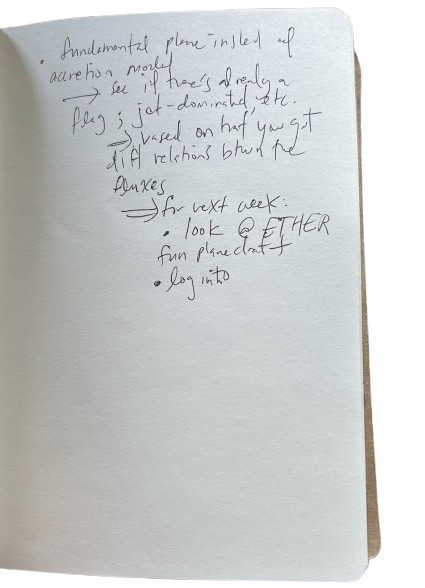 • fundamental plane instead of
accretion model
→ see if there's already a
flag; jet-dominated, etc.
⇒ based on that you get
diff relations btwn the
fluxes
⇒ for next week:
• look @ ETHER
fun plane draft
• log into